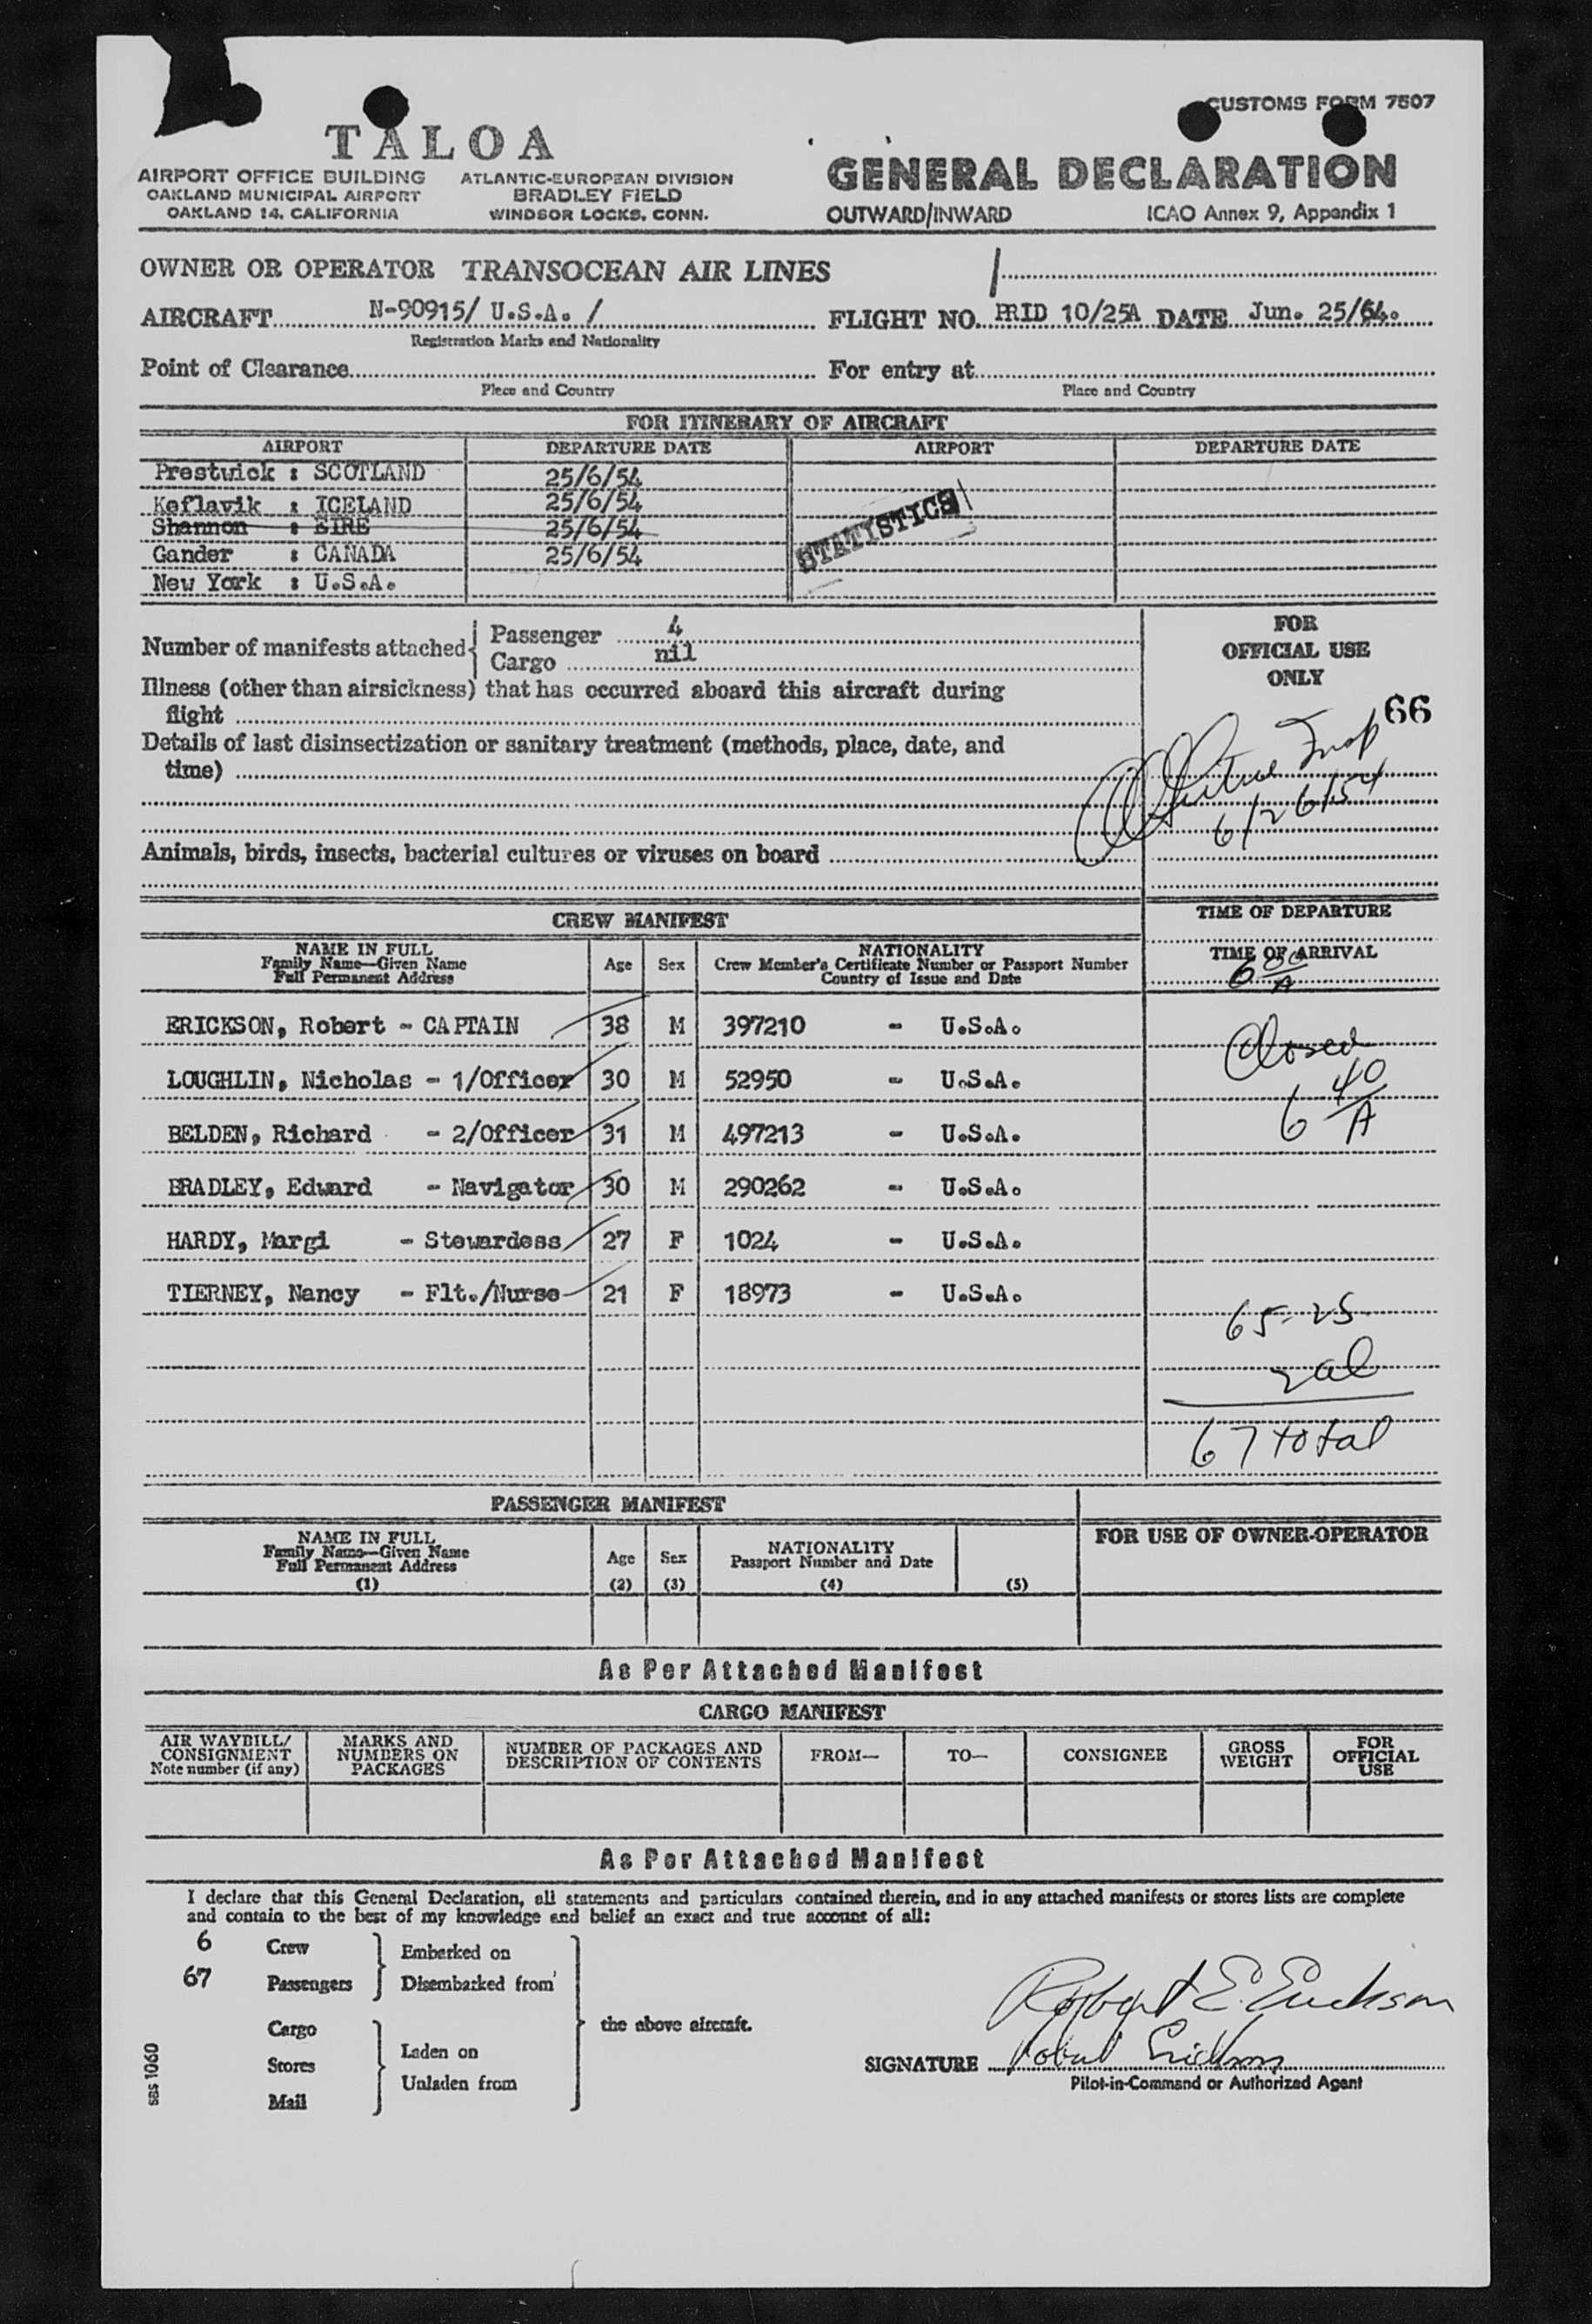 CUSTOMS FORM 7507
TALOA
AIRPORT OFFICE BUILDING
OAKLAND MUNICIPAL AIRPORT
OAKLAND 14, CALIFORNIA
ATLANTIC-EUROPEAN DIVISION
BRADLEY FIELD
WINDSOR LOCKS, CONN.
GENERAL DECLARATION
OUTWARD/INWARD ICAO Annex 9, Appendix 1
OWNER OR OPERATOR TRANSOCEAN AIR LINES
AIRCRAFT N-90915/ U.S.A. / FLIGHT NO. PRID 10/25A DATE Jun. 25/54.
Registration Marks and Nationality
Point of Clearance For entry at
Place and Country Place and Country
FOR ITINERARY OF AIRCRAFT
AIRPORT DEPARTURE DATE AIRPORT DEPARTURE DATE
Prestwick : SCOTLAND 25/6/54
Keflavik : ICELAND 25/6/54
Shannon : EIRE 25/6/54
Gander : CANADA 25/6/54
New York : U.S.A.
STATISTICS
Number of manifests attached Passenger 4
Cargo nil
Illness (other than airsickness) that has occurred aboard this aircraft during
flight
Details of last disinsectization or sanitary treatment (methods, place, date, and
time)
Animals, birds, insects, bacterial cultures or viruses on board
FOR
OFFICIAL USE
ONLY
66
Insp
6/26/54
CREW MANIFEST
TIME OF DEPARTURE
TIME OF ARRIVAL
6 00/A
NAME IN FULL
Family Name—Given Name
Full Permanent Address
Age Sex
NATIONALITY
Crew Member's Certificate Number or Passport Number
Country of Issue and Date
ERICKSON, Robert - CAPTAIN 38 M 397210 - U.S.A.
LOUGHLIN, Nicholas - 1/Officer 30 M 52950 - U.S.A.
BELDEN, Richard - 2/Officer 31 M 497213 - U.S.A.
BRADLEY, Edward - Navigator 30 M 290262 - U.S.A.
HARDY, Margi - Stewardess 27 F 1024 - U.S.A.
TIERNEY, Nancy - Flt./Nurse 21 F 18973 - U.S.A.
Closed
6 40/A
65-
67 total
PASSENGER MANIFEST
NAME IN FULL
Family Name—Given Name
Full Permanent Address
(1)
Age
(2)
Sex
(3)
NATIONALITY
Passport Number and Date
(4)
(5)
FOR USE OF OWNER-OPERATOR
As Per Attached Manifest
CARGO MANIFEST
AIR WAYBILL/
CONSIGNMENT
Note number (if any)
MARKS AND
NUMBERS ON
PACKAGES
NUMBER OF PACKAGES AND
DESCRIPTION OF CONTENTS
FROM—
TO—
CONSIGNEE
GROSS
WEIGHT
FOR
OFFICIAL
USE
As Per Attached Manifest
I declare that this General Declaration, all statements and particulars contained therein, and in any attached manifests or stores lists are complete
and contain to the best of my knowledge and belief an exact and true account of all:
6 Crew
67 Passengers
Embarked on
Disembarked from
Cargo
Stores
Mail
Laden on
Unladen from
the above aircraft.
Robert E. Erickson
SIGNATURE Robert Erickson
Pilot-in-Command or Authorized Agent
SBS 1060